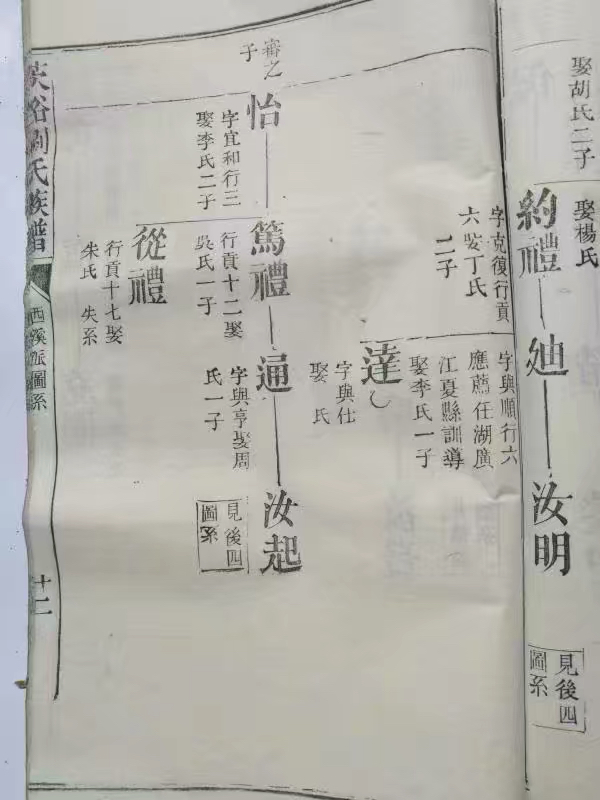 娶胡氏二子
娶楊氏
約禮
字克復行貢
六娶丁氏
二子
廸
字與順行六
應薦任湖廣
江夏縣訓導
娶李氏一子
汝明
見後四
圖系
達
字與仕
娶 氏
審之
子
怡
字宜和行三
娶李氏二子
篤禮
行貢十二娶
吳氏一子
通
字與亨娶周
氏一子
汝起
見後四
圖系
從禮
行貢十七娶
朱氏 失系
劉氏族譜
西溪派圖系
十二